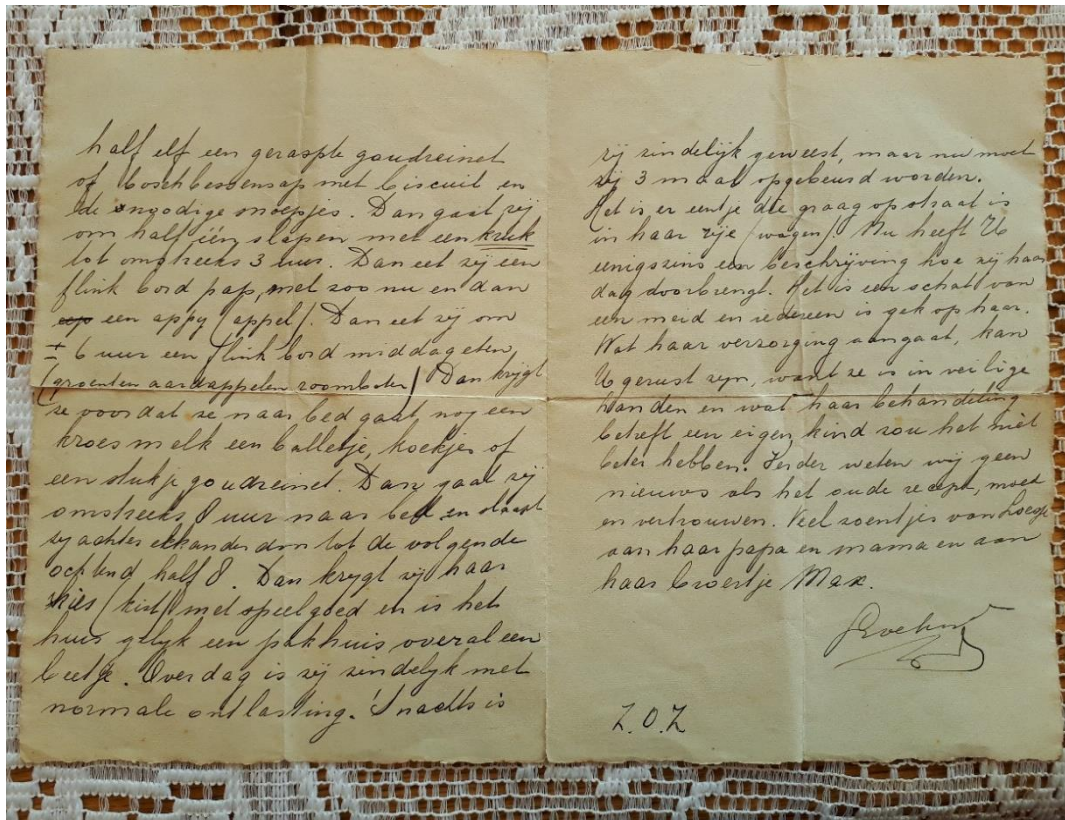 half elf een geraspte goudreinet
of boschbessensap met biscuit en
de noodige snoepjes. Dan gaat zij
om half één slapen met een kruk
tot omstreeks 3 uur. Dan eet zij een
flink bord pap, met zoo nu en dan
een appy (appel). Dan eet zij om
± 6 uur een flink bord middageten
(groenten aardappelen roomboter) Dan krijgt
ze voordat ze naar bed gaat, nog een
kroes melk een balletje, koekjes of
een stukje goudreinet. Dan gaat zij
omstreeks 8 uur naar bed en slaapt
zij achter elkander door tot de volgende
ochtend half 8. Dan krygt zij haar
kies (kist) met speelgoed en is het
huis gelyk een pakhuis overal een
beetje. Overdag is zij zindelyk met
normale ontlasting. 's nachts is
zij zindelijk geweest, maar nu moet
zij 3 maal opgebeurd worden.
Het is er eentje die graag op straat is
in haar rije (wagen). Nu heeft U
eenigszins een beschrijving hoe zij haar
dag doorbrengt. Het is een schat van
een meid en iedereen is gek op haar.
Wat haar verzorging aangaat, kan
U gerust zyn, want ze is in veilige
handen en wat haar behandeling
betreft een eigen kind zou het niet
beter hebben. Verder weten wij geen
nieuws als het oude recept, moed
en vertrouwen. Veel zoentjes van
aan haar papa en mama en aan
haar broertje Max.
Z.O.Z